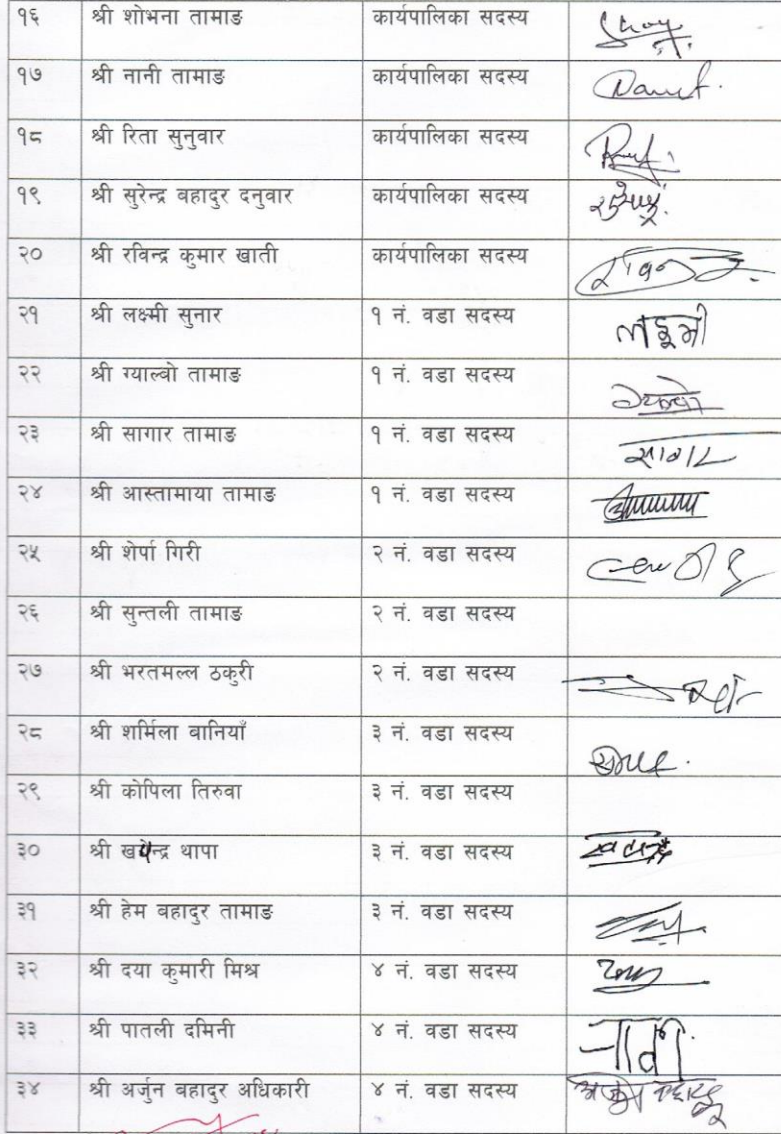 १६ श्री शोभना तामाङ कार्यपालिका सदस्य
१७ श्री नानी तामाङ कार्यपालिका सदस्य
१८ श्री रिता सुनुवार कार्यपालिका सदस्य
१९ श्री सुरेन्द्र बहादुर दनुवार कार्यपालिका सदस्य
२० श्री रविन्द्र कुमार खाती कार्यपालिका सदस्य
२१ श्री लक्ष्मी सुनार १ नं. वडा सदस्य
२२ श्री ग्याल्बो तामाङ १ नं. वडा सदस्य
२३ श्री सागार तामाङ १ नं. वडा सदस्य सागार
२४ श्री आस्तामाया तामाङ १ नं. वडा सदस्य
२५ श्री शेर्पा गिरी २ नं. वडा सदस्य
२६ श्री सुन्तली तामाङ २ नं. वडा सदस्य
२७ श्री भरतमल्ल ठकुरी २ नं. वडा सदस्य
२८ श्री शर्मिला बानियाँ ३ नं. वडा सदस्य
२९ श्री कोपिला तिरुवा ३ नं. वडा सदस्य
३० श्री थापा ३ नं. वडा सदस्य
३१ श्री हेम बहादुर तामाङ ३ नं. वडा सदस्य
३२ श्री दया कुमारी मिश्र ४ नं. वडा सदस्य
३३ श्री पातली दमिनी ४ नं. वडा सदस्य
३४ श्री अर्जुन बहादुर अधिकारी ४ नं. वडा सदस्य